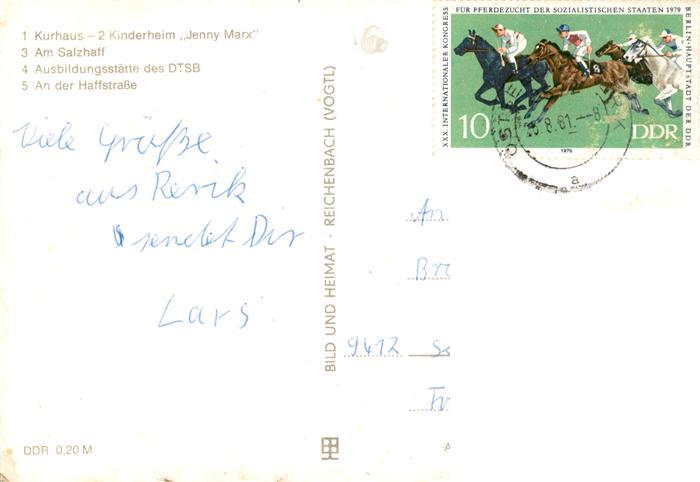 1 Kurhaus – 2 Kinderheim „Jenny Marx"
3 Am Salzhaff
4 Ausbildungsstätte des DTSB
5 An der Haffstraße
Viele Grüße
aus Rerik
sendet Dir
Lars
DDR 0,20 M
BILD UND HEIMAT · REICHENBACH (VOGTL)
XXX INTERNATIONALER KONGRESS
FÜR PFERDEZUCHT DER SOZIALISTISCHEN STAATEN 1979
BERLIN-HAUPTSTADT DER DDR
10
DDR
1979
8.81.-8
a
An
9412